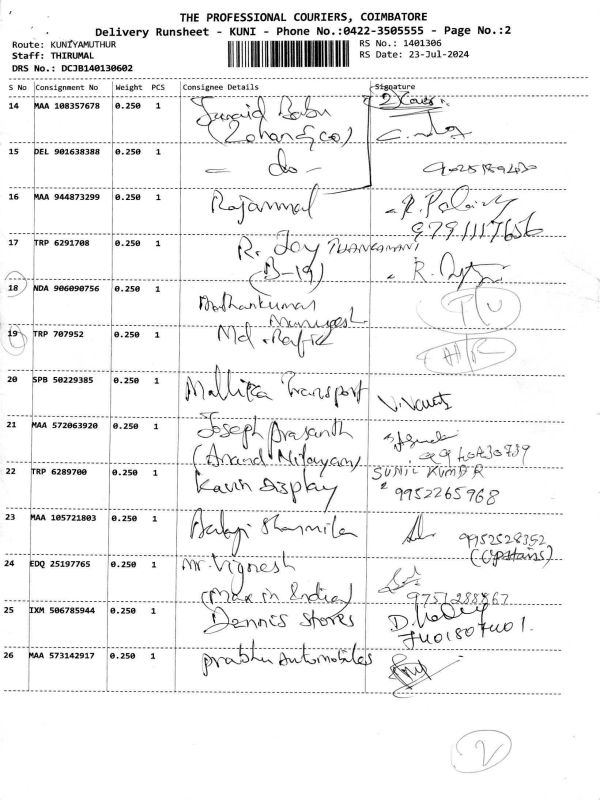 THE PROFESSIONAL COURIERS, COIMBATORE
Delivery Runsheet - KUNI - Phone No.:0422-3505555 - Page No.:2
Route: KUNIYAMUTHUR
RS No.: 1401306
Staff: THIRUMAL
RS Date: 23-Jul-2024
DRS No.: DCJB140130602
S No Consignment No Weight PCS Consignee Details Signature
14 MAA 108357678 0.250 1 Junaid Babu
15 DEL 901638388 0.250 1 - do -
16 MAA 944873299 0.250 1 Rajammal
9791117656
17 TRP 6291708 0.250 1 R. Joy THANGAMANI
(B-19)
18 NDA 906090756 0.250 1 Muthukumar
Murugesh
19 TRP 707952 0.250 1 Md. Rafik
20 SPB 50229385 0.250 1 Mallika Transport
21 MAA 572063920 0.250 1 Joseph Prasanth
(Anand Nilayam)
22 TRP 6289700 0.250 1 Kavin Display SUNIL KUMAR
9952265968
23 MAA 105721803 0.250 1 Balaji Sharmila 9952528352
(Upstairs)
24 EDQ 25197765 0.250 1 Mr. Vignesh
(Max in India) 9751288867
25 IXM 506785944 0.250 1 Dennis Stores
7401807401.
26 MAA 573142917 0.250 1 prabhu Automobiles
2